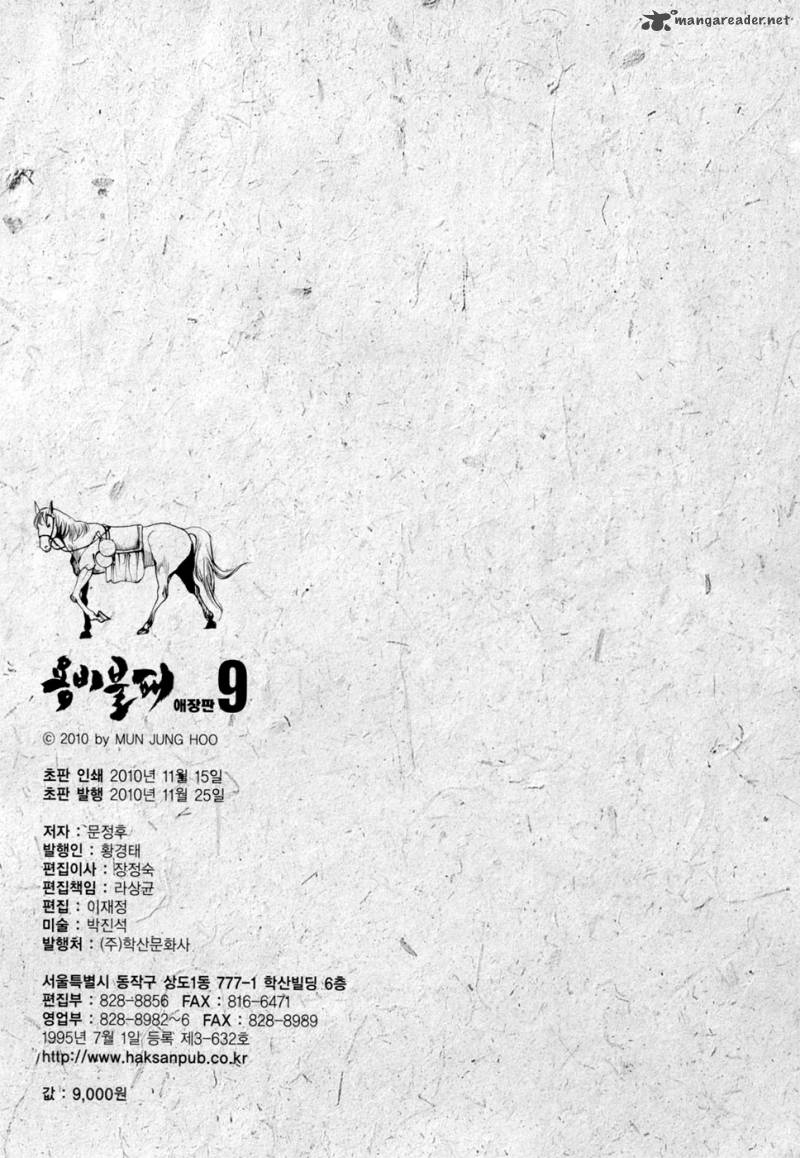 mangareader.net
용비불패 애장판 9
© 2010 by MUN JUNG HOO
초판 인쇄 2010년 11월 15일
초판 발행 2010년 11월 25일
저자 : 문정후
발행인 : 황경태
편집이사 : 장정숙
편집책임 : 라상균
편집 : 이재정
미술 : 박진석
발행처 : (주)학산문화사
서울특별시 동작구 상도1동 777-1 학산빌딩 6층
편집부 : 828-8856 FAX : 816-6471
영업부 : 828-8982~6 FAX : 828-8989
1995년 7월 1일 등록 제3-632호
http://www.haksanpub.co.kr
값 : 9,000원